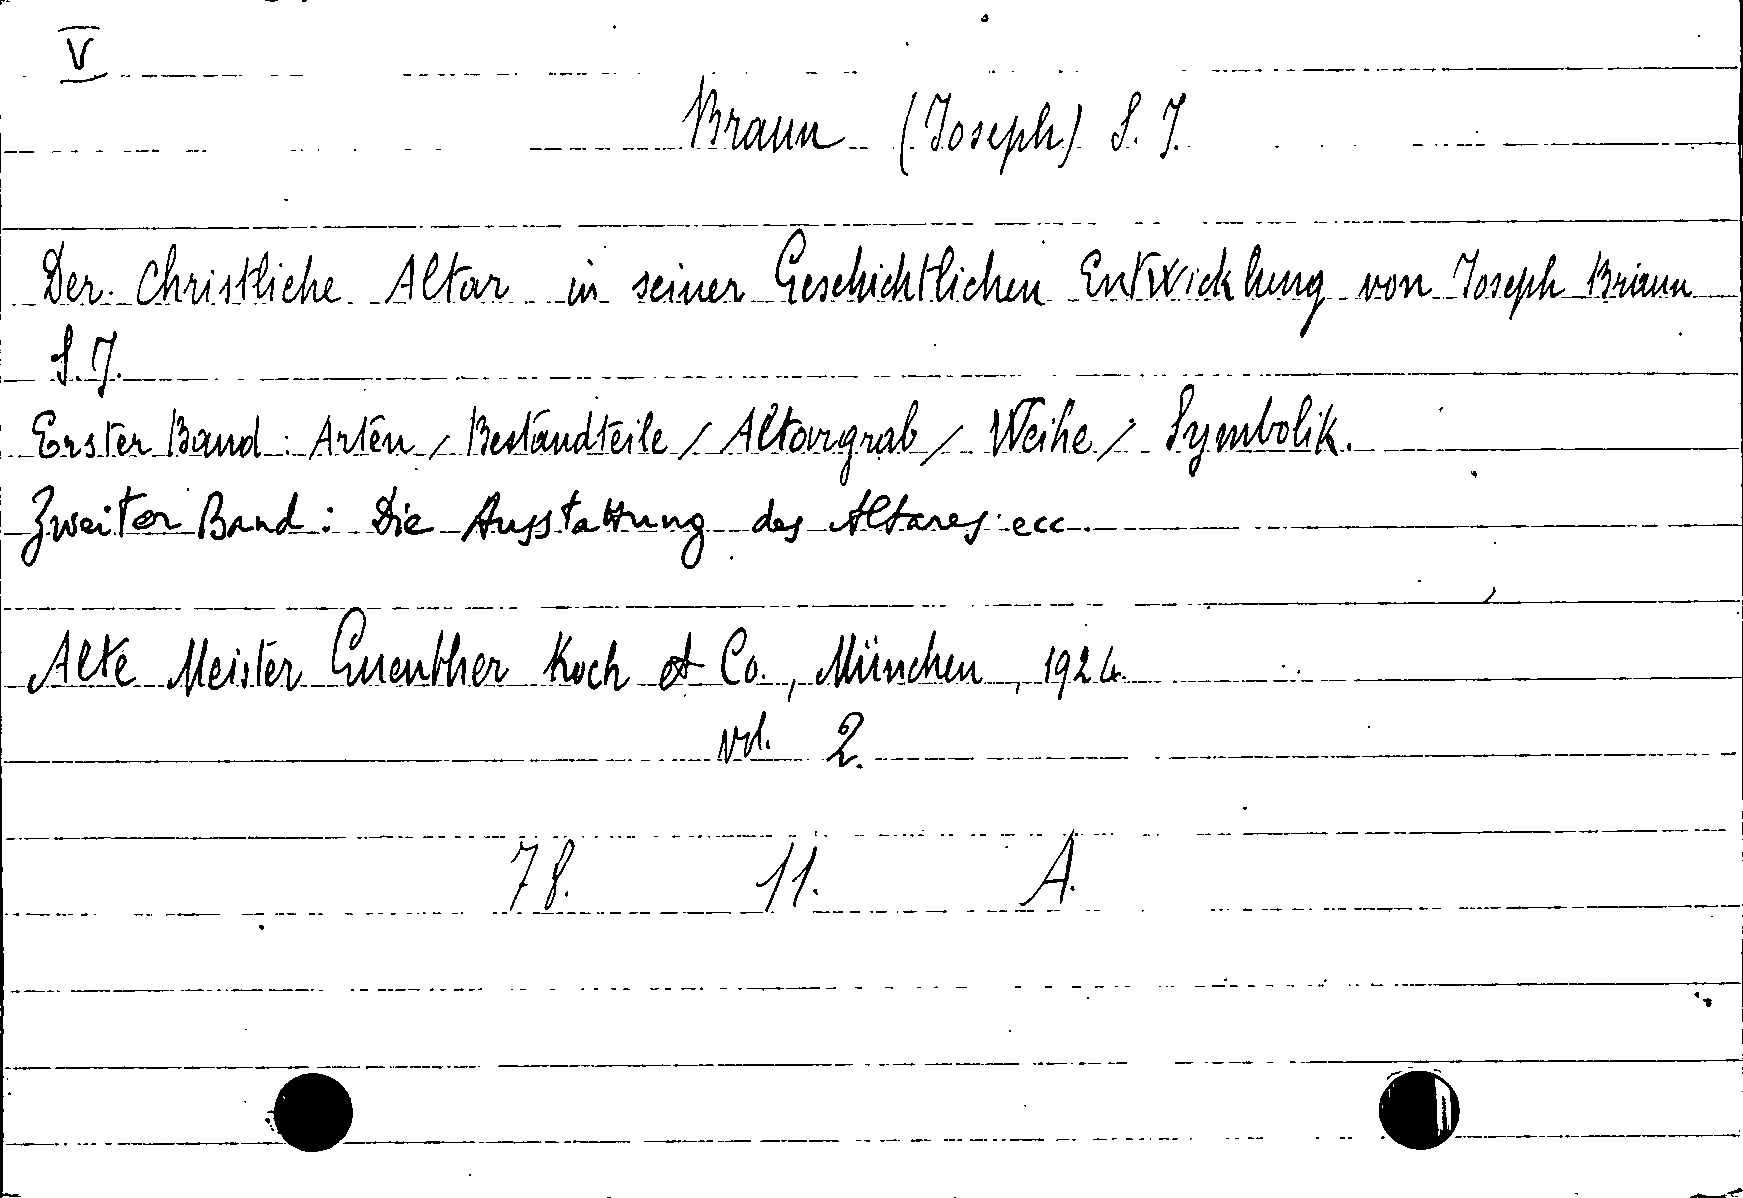 V
Braun (Joseph) S. J.
Der Christliche Altar in seiner Geschichtlichen Entwicklung von Joseph Braun
S. J.
Erster Band: Arten / Bestandteile / Altargrab / Weihe / Symbolik.
Zweiter Band: Die Ausstattung des Altares ecc.
Alte Meister Guenther Koch & Co., München, 1924.
vol. 2.
78. 11. A.